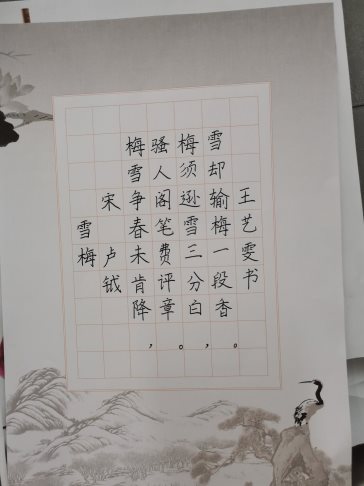 雪梅
宋 卢钺
梅雪争春未肯降，
骚人阁笔费评章。
梅须逊雪三分白，
雪却输梅一段香。
王艺雯书